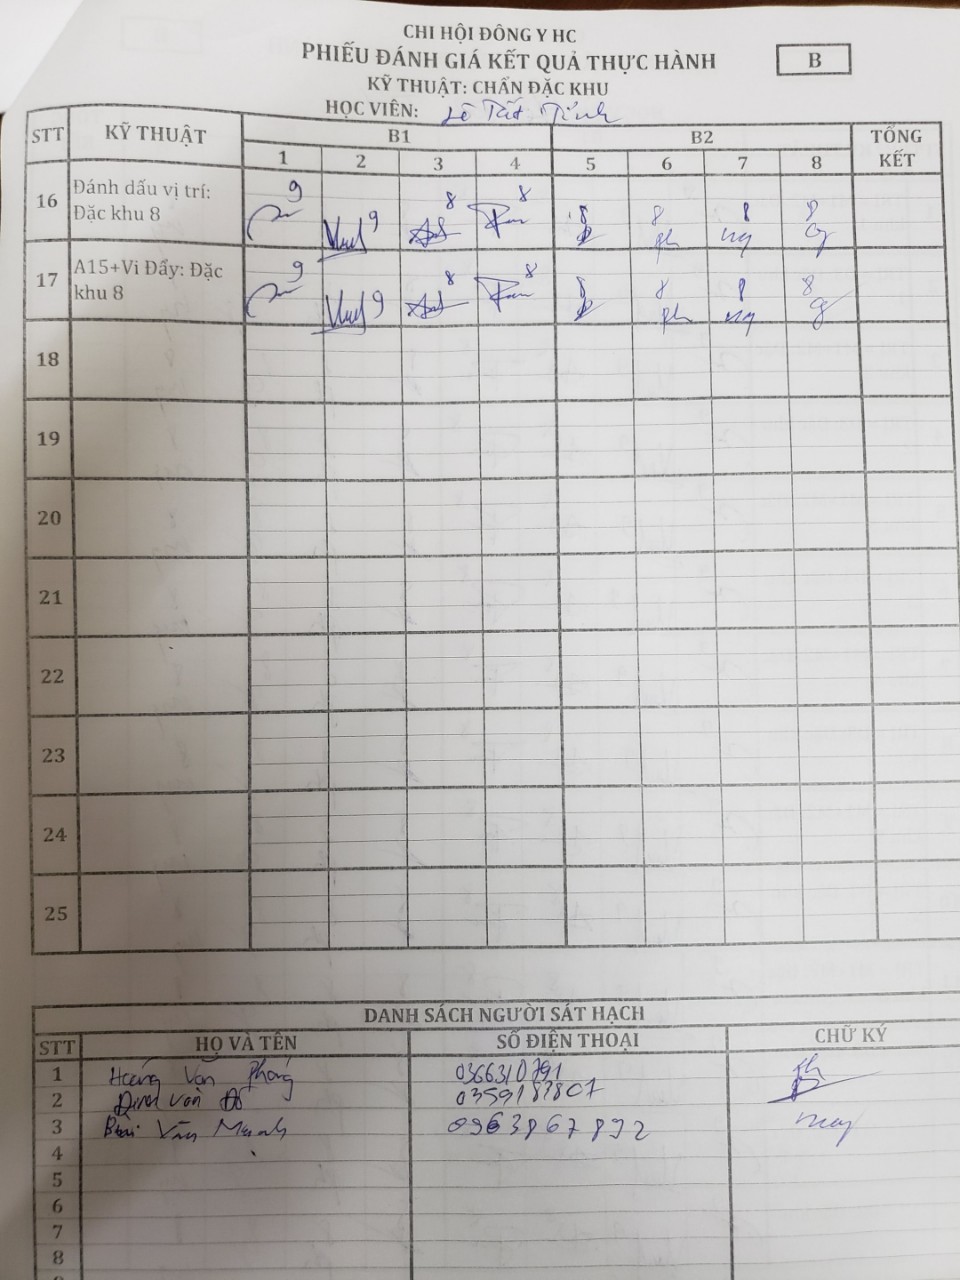 CHI HỘI ĐÔNG Y HC
PHIẾU ĐÁNH GIÁ KẾT QUẢ THỰC HÀNH
B
KỸ THUẬT: CHẨN ĐẶC KHU
HỌC VIÊN: Lê Tất Tính
STT KỸ THUẬT B1 B2 TỔNG KẾT
1 2 3 4 5 6 7 8
16 Đánh dấu vị trí: Đặc khu 8 9 9 8 8 8 8 8 8
17 A15+Vi Đẩy: Đặc khu 8 9 9 8 8 8 8 8 8
18
19
20
21
22
23
24
25
DANH SÁCH NGƯỜI SÁT HẠCH
STT HỌ VÀ TÊN SỐ ĐIỆN THOẠI CHỮ KÝ
1 Hoàng Văn Phóng 0366310791
2 Đinh Văn Đô 0359183807
3 Bùi Văn Mạnh 0963867892
4
5
6
7
8